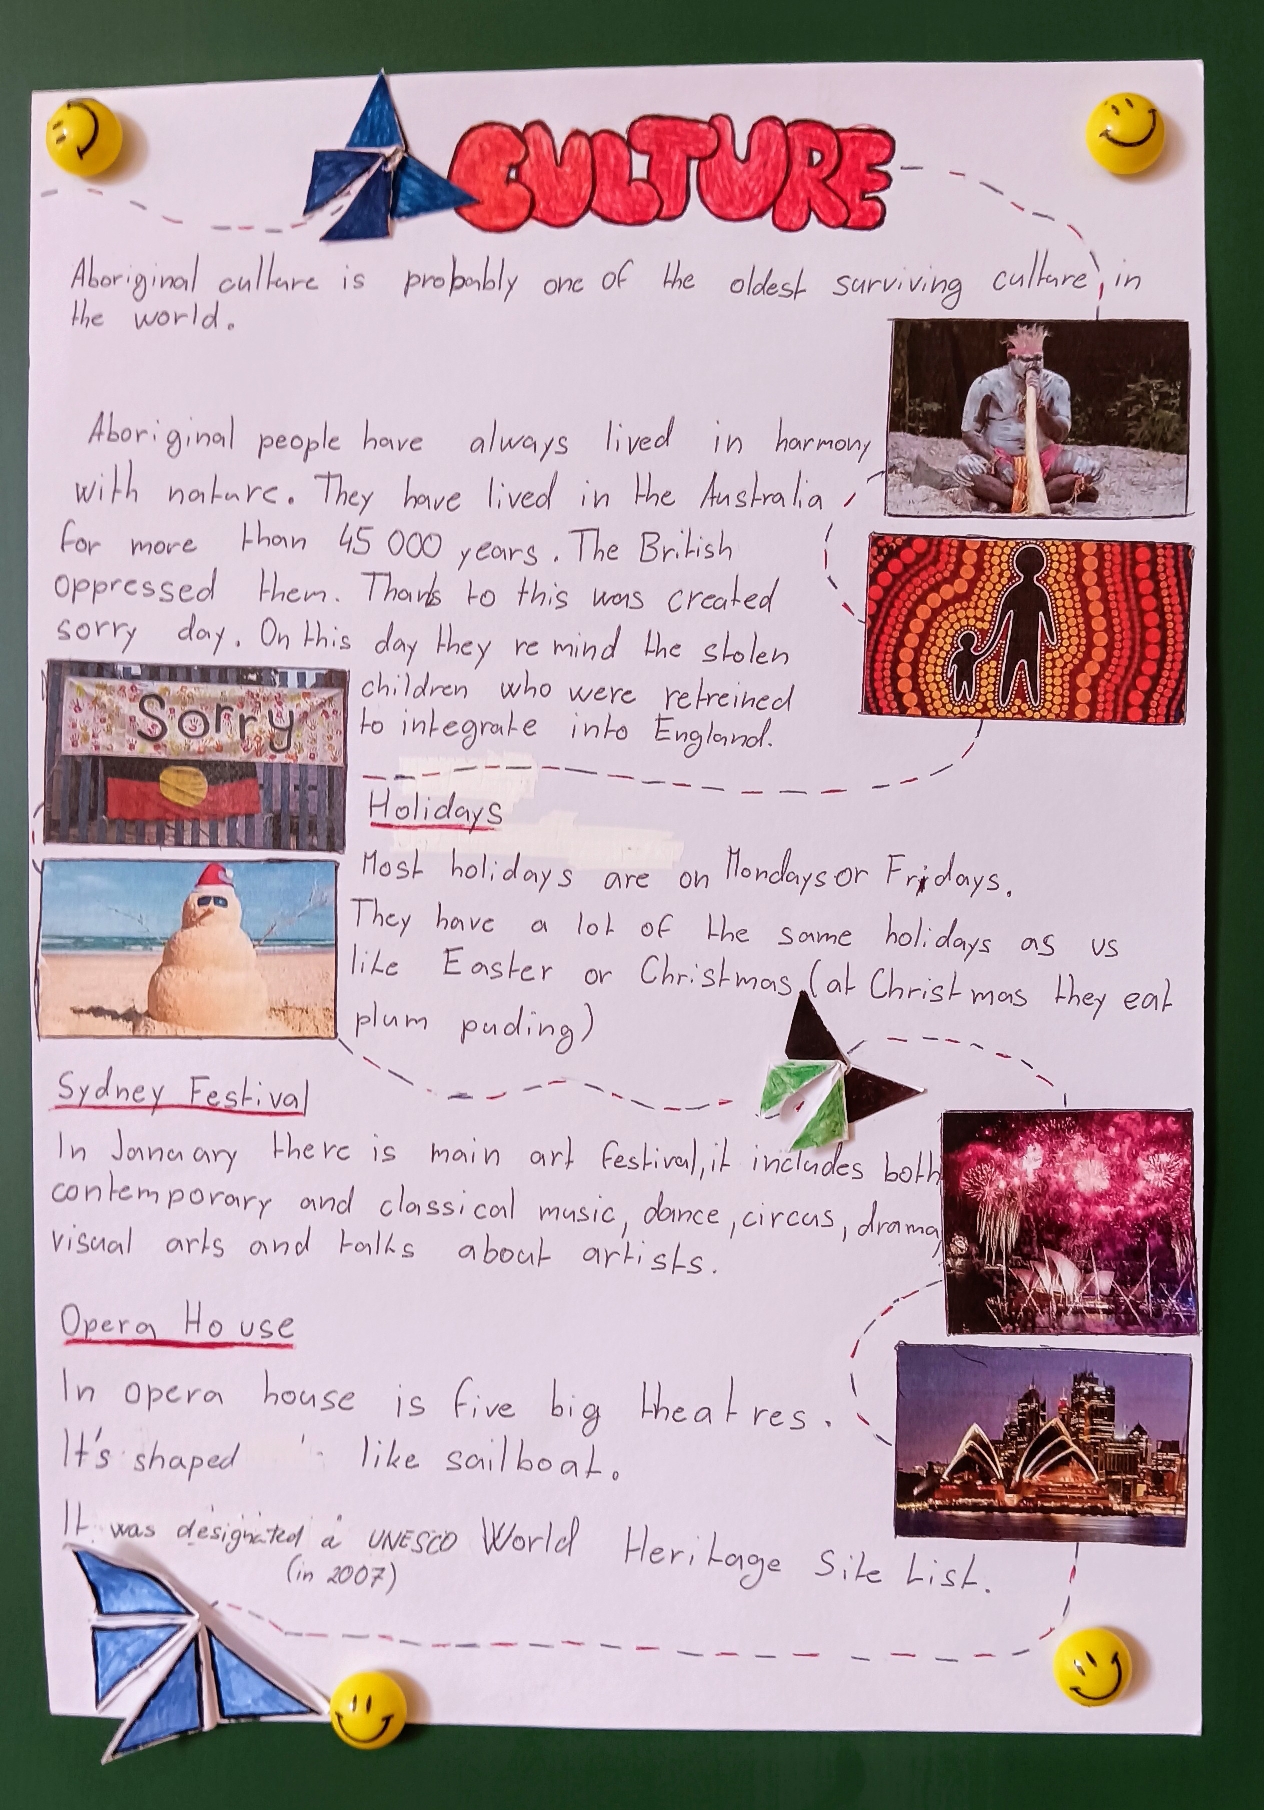 CULTURE
Aboriginal culture is probably one of the oldest surviving culture in
the world.
Aboriginal people have always lived in harmony
with nature. They have lived in the Australia
for more than 45 000 years. The British
oppressed them. Thanks to this was created
sorry day. On this day they remind the stolen
children who were retreined
to integrate into England.
Sorry
Holidays
Most holidays are on Mondays or Fridays.
They have a lot of the same holidays as us
like Easter or Christmas (at Christmas they eat
plum puding)
Sydney Festival
In January there is main art festival, it includes both
contemporary and classical music, dance, circus, drama,
visual arts and talks about artists.
Opera House
In opera house is five big theatres.
It's shaped like sailboat.
It was designated a UNESCO World Heritage Site List.
(in 2007)